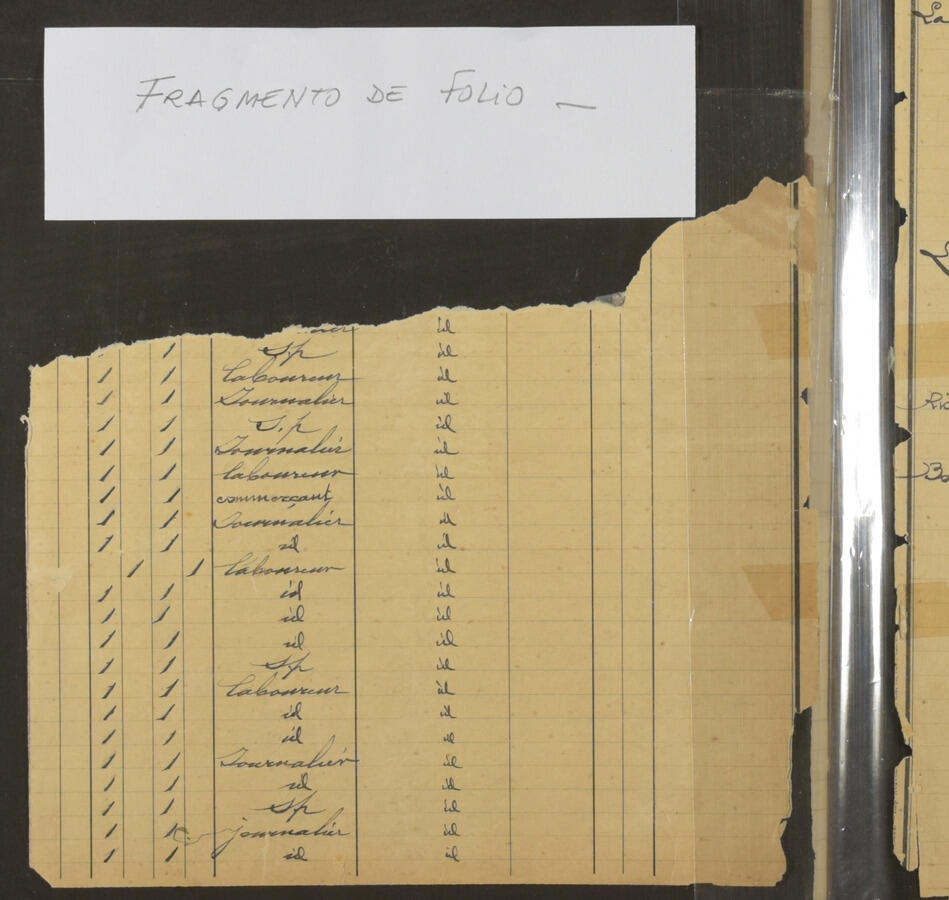 FRAGMENTO DE FOLIO —
id
S.p id
1 1 laboureur id
1 1 Journalier id
1 1 S.p id
1 1 Journalier id
1 1 laboureur id
1 1 commerçant id
1 1 Journalier id
1 1 id id
1 1 laboureur id
1 1 id id
1 1 id id
1 1 id id
1 1 Sp id
1 1 laboureur id
1 1 id id
1 1 id id
1 1 Journalier id
1 1 id id
1 1 Sp id
1 1 journalier id
1 1 id id